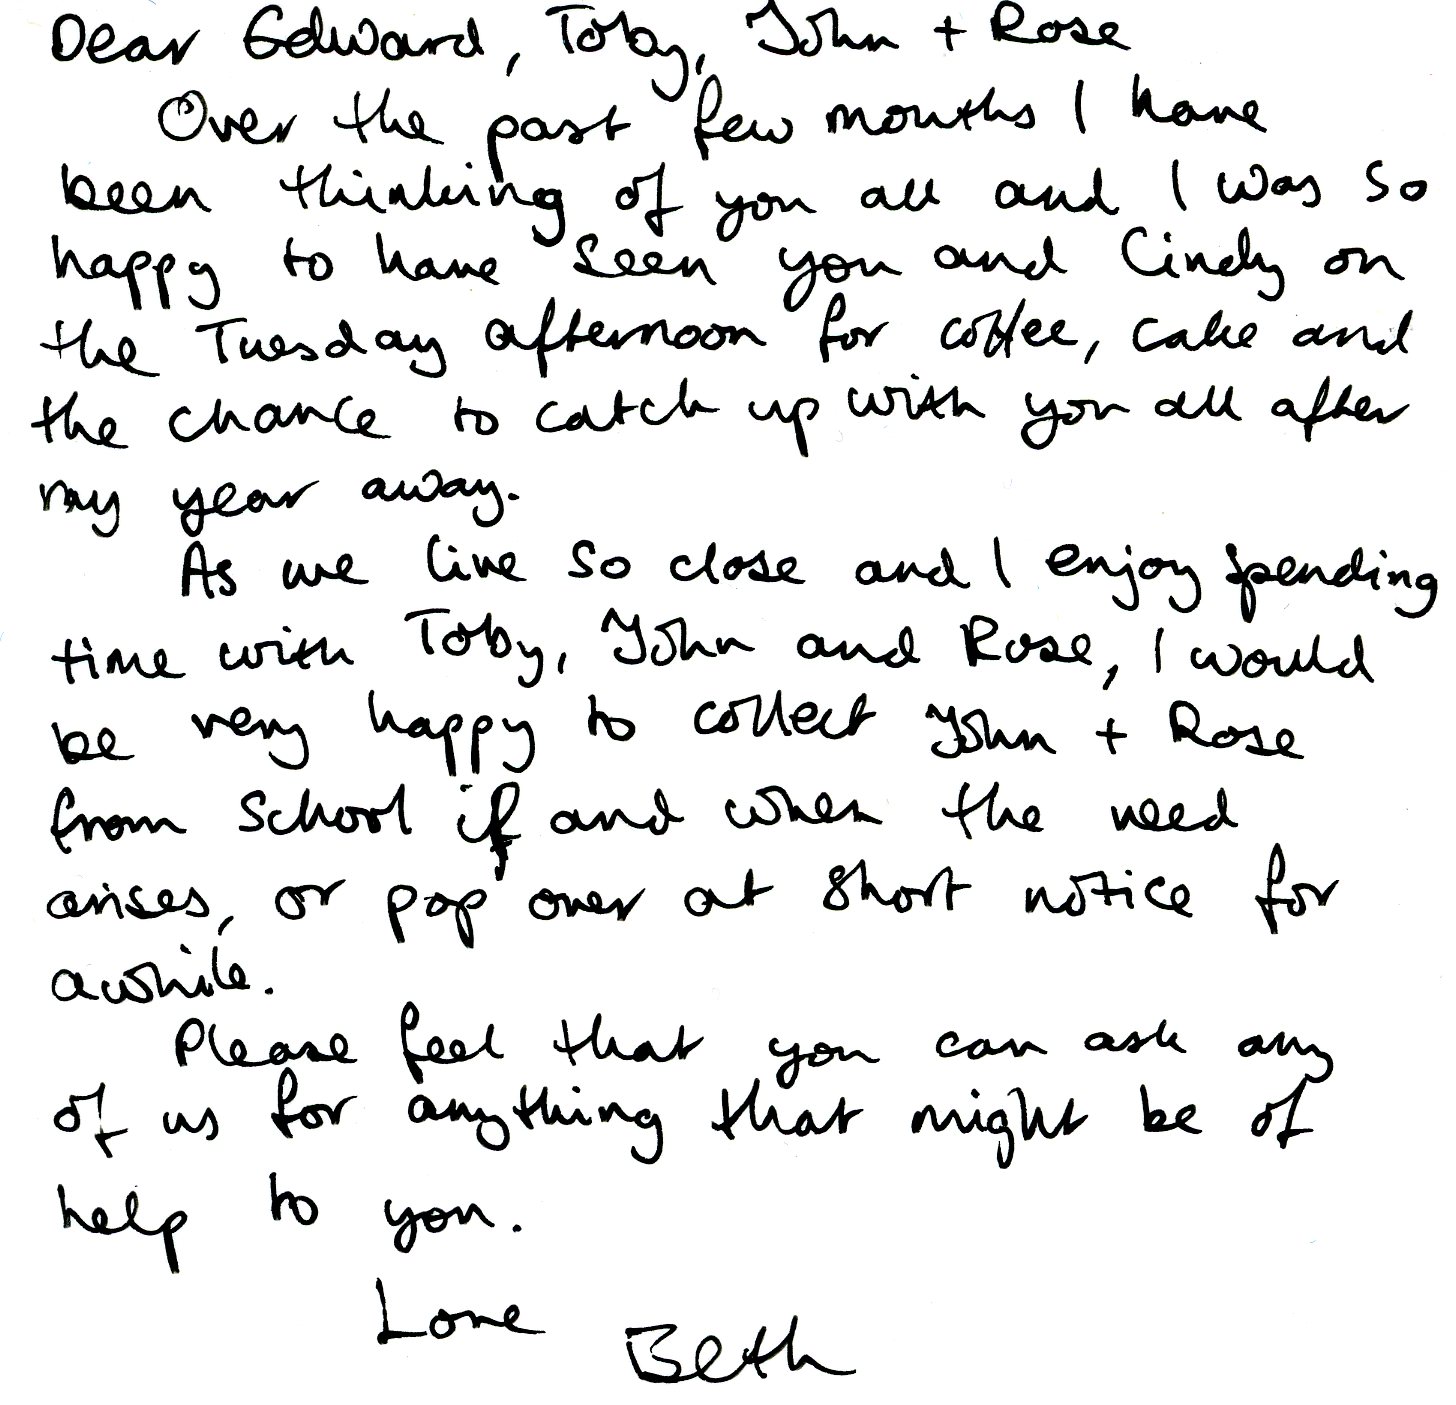 Dear Edward, Toby, John + Rose
Over the past few months I have
been thinking of you all and I was so
happy to have seen you and Cindy on
the Tuesday afternoon for coffee, cake and
the chance to catch up with you all after
my year away.
As we live so close and I enjoy spending
time with Toby, John and Rose, I would
be very happy to collect John + Rose
from school if and when the need
arises, or pop over at short notice for
awhile.
Please feel that you can ask any
of us for anything that might be of
help to you.
Love
Beth